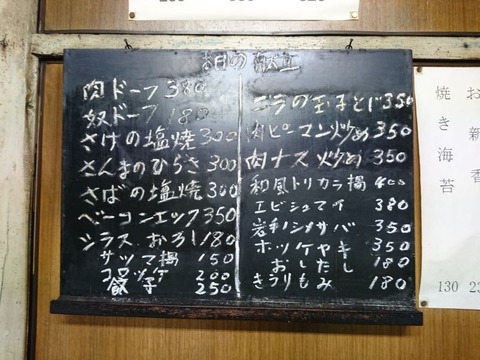 本日の献立
肉ドーフ 380
奴ドーフ 180
さけの塩焼 300
さんまのひらき 300
さばの塩焼 300
ベーコンエッグ 350
シラスおろし 180
サツマ揚 150
コロッケ 200
餃子 250
ニラの玉子とじ 350
肉ピーマン炒め 350
肉ナス炒め 350
和風トリカラ揚 400
エビシュマイ 380
サバ 350
ホッケヤキ 350
おしたし 180
きうりもみ 180
お新香
焼き海苔
130